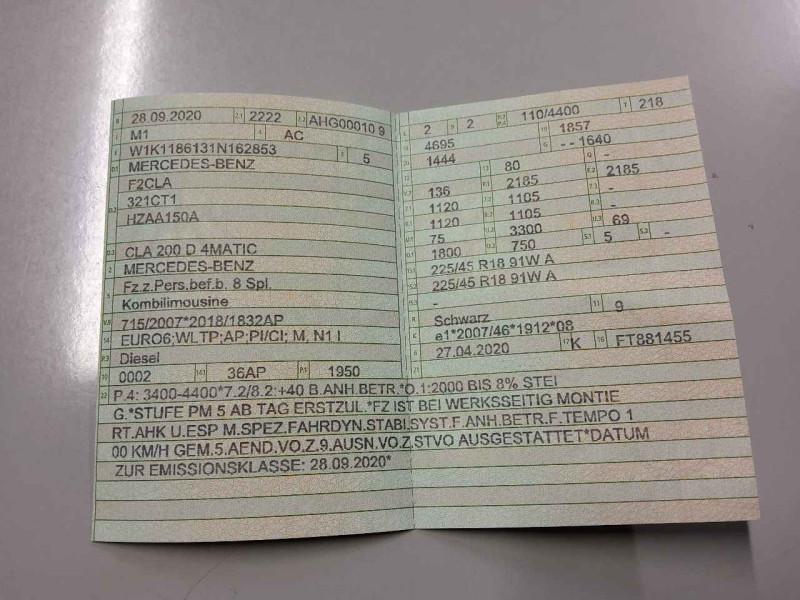 28.09.2020 2222 AHG00010 9
M1 AC
W1K1186131N162853 5
MERCEDES-BENZ
F2CLA
321CT1
HZAA150A
CLA 200 D 4MATIC
MERCEDES-BENZ
Fz.z.Pers.bef.b. 8 Spl.
Kombilimousine
715/2007*2018/1832AP
EURO6;WLTP;AP;PI/CI; M, N1 I
Diesel
0002 36AP 1950
2 2 110/4400 218
4695 1857
1444 - - 1640
80 -
136 2185 2185
1120 1105 -
1120 1105 -
75 3300 69
1800 750 5 -
225/45 R18 91W A
225/45 R18 91W A
-
Schwarz 9
e1*2007/46*1912*08
27.04.2020 K FT881455
P.4: 3400-4400*7.2/8.2:+40 B.ANH.BETR.*O.1:2000 BIS 8% STEI
G.*STUFE PM 5 AB TAG ERSTZUL.*FZ IST BEI WERKSSEITIG MONTIE
RT.AHK U.ESP M.SPEZ.FAHRDYN.STABI.SYST.F.ANH.BETR.F.TEMPO 1
00 KM/H GEM.5.AEND.VO.Z.9.AUSN.VO.Z.STVO AUSGESTATTET*DATUM
ZUR EMISSIONSKLASSE: 28.09.2020*